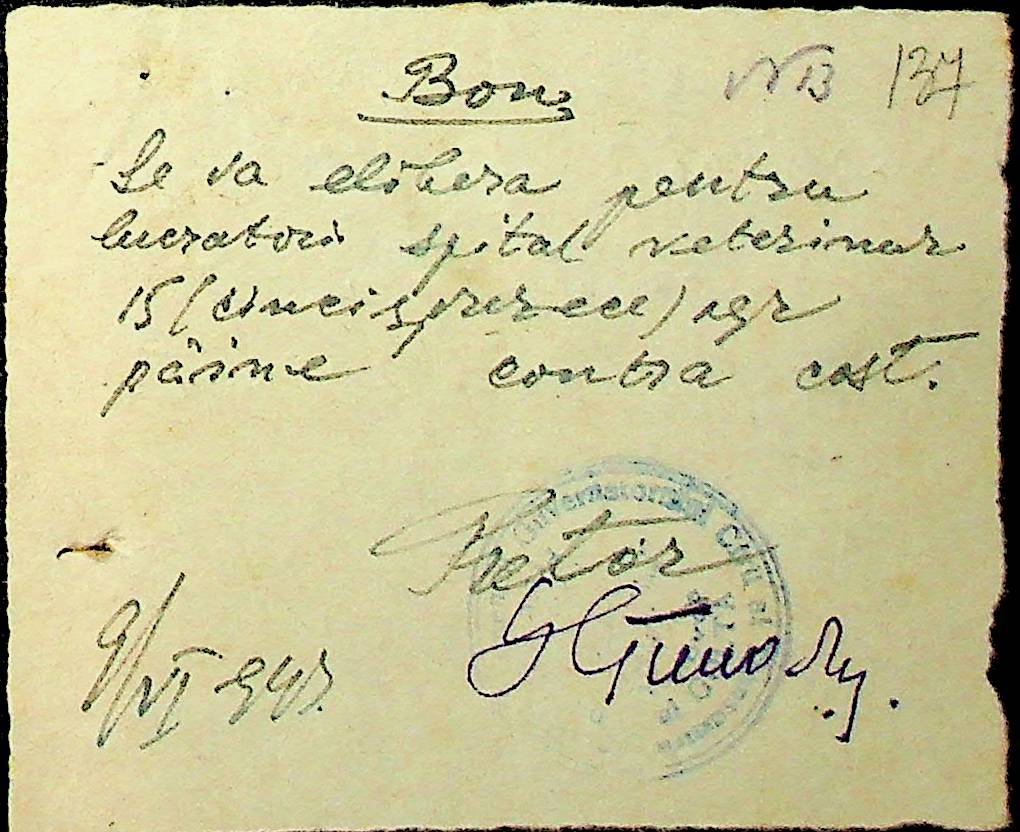 Bon NB 137
Se va elibera pentru
lucratori spital veterinar
15 (cincisprezece) kgr
pâine contra cost.
Pretor
9/VI 943.